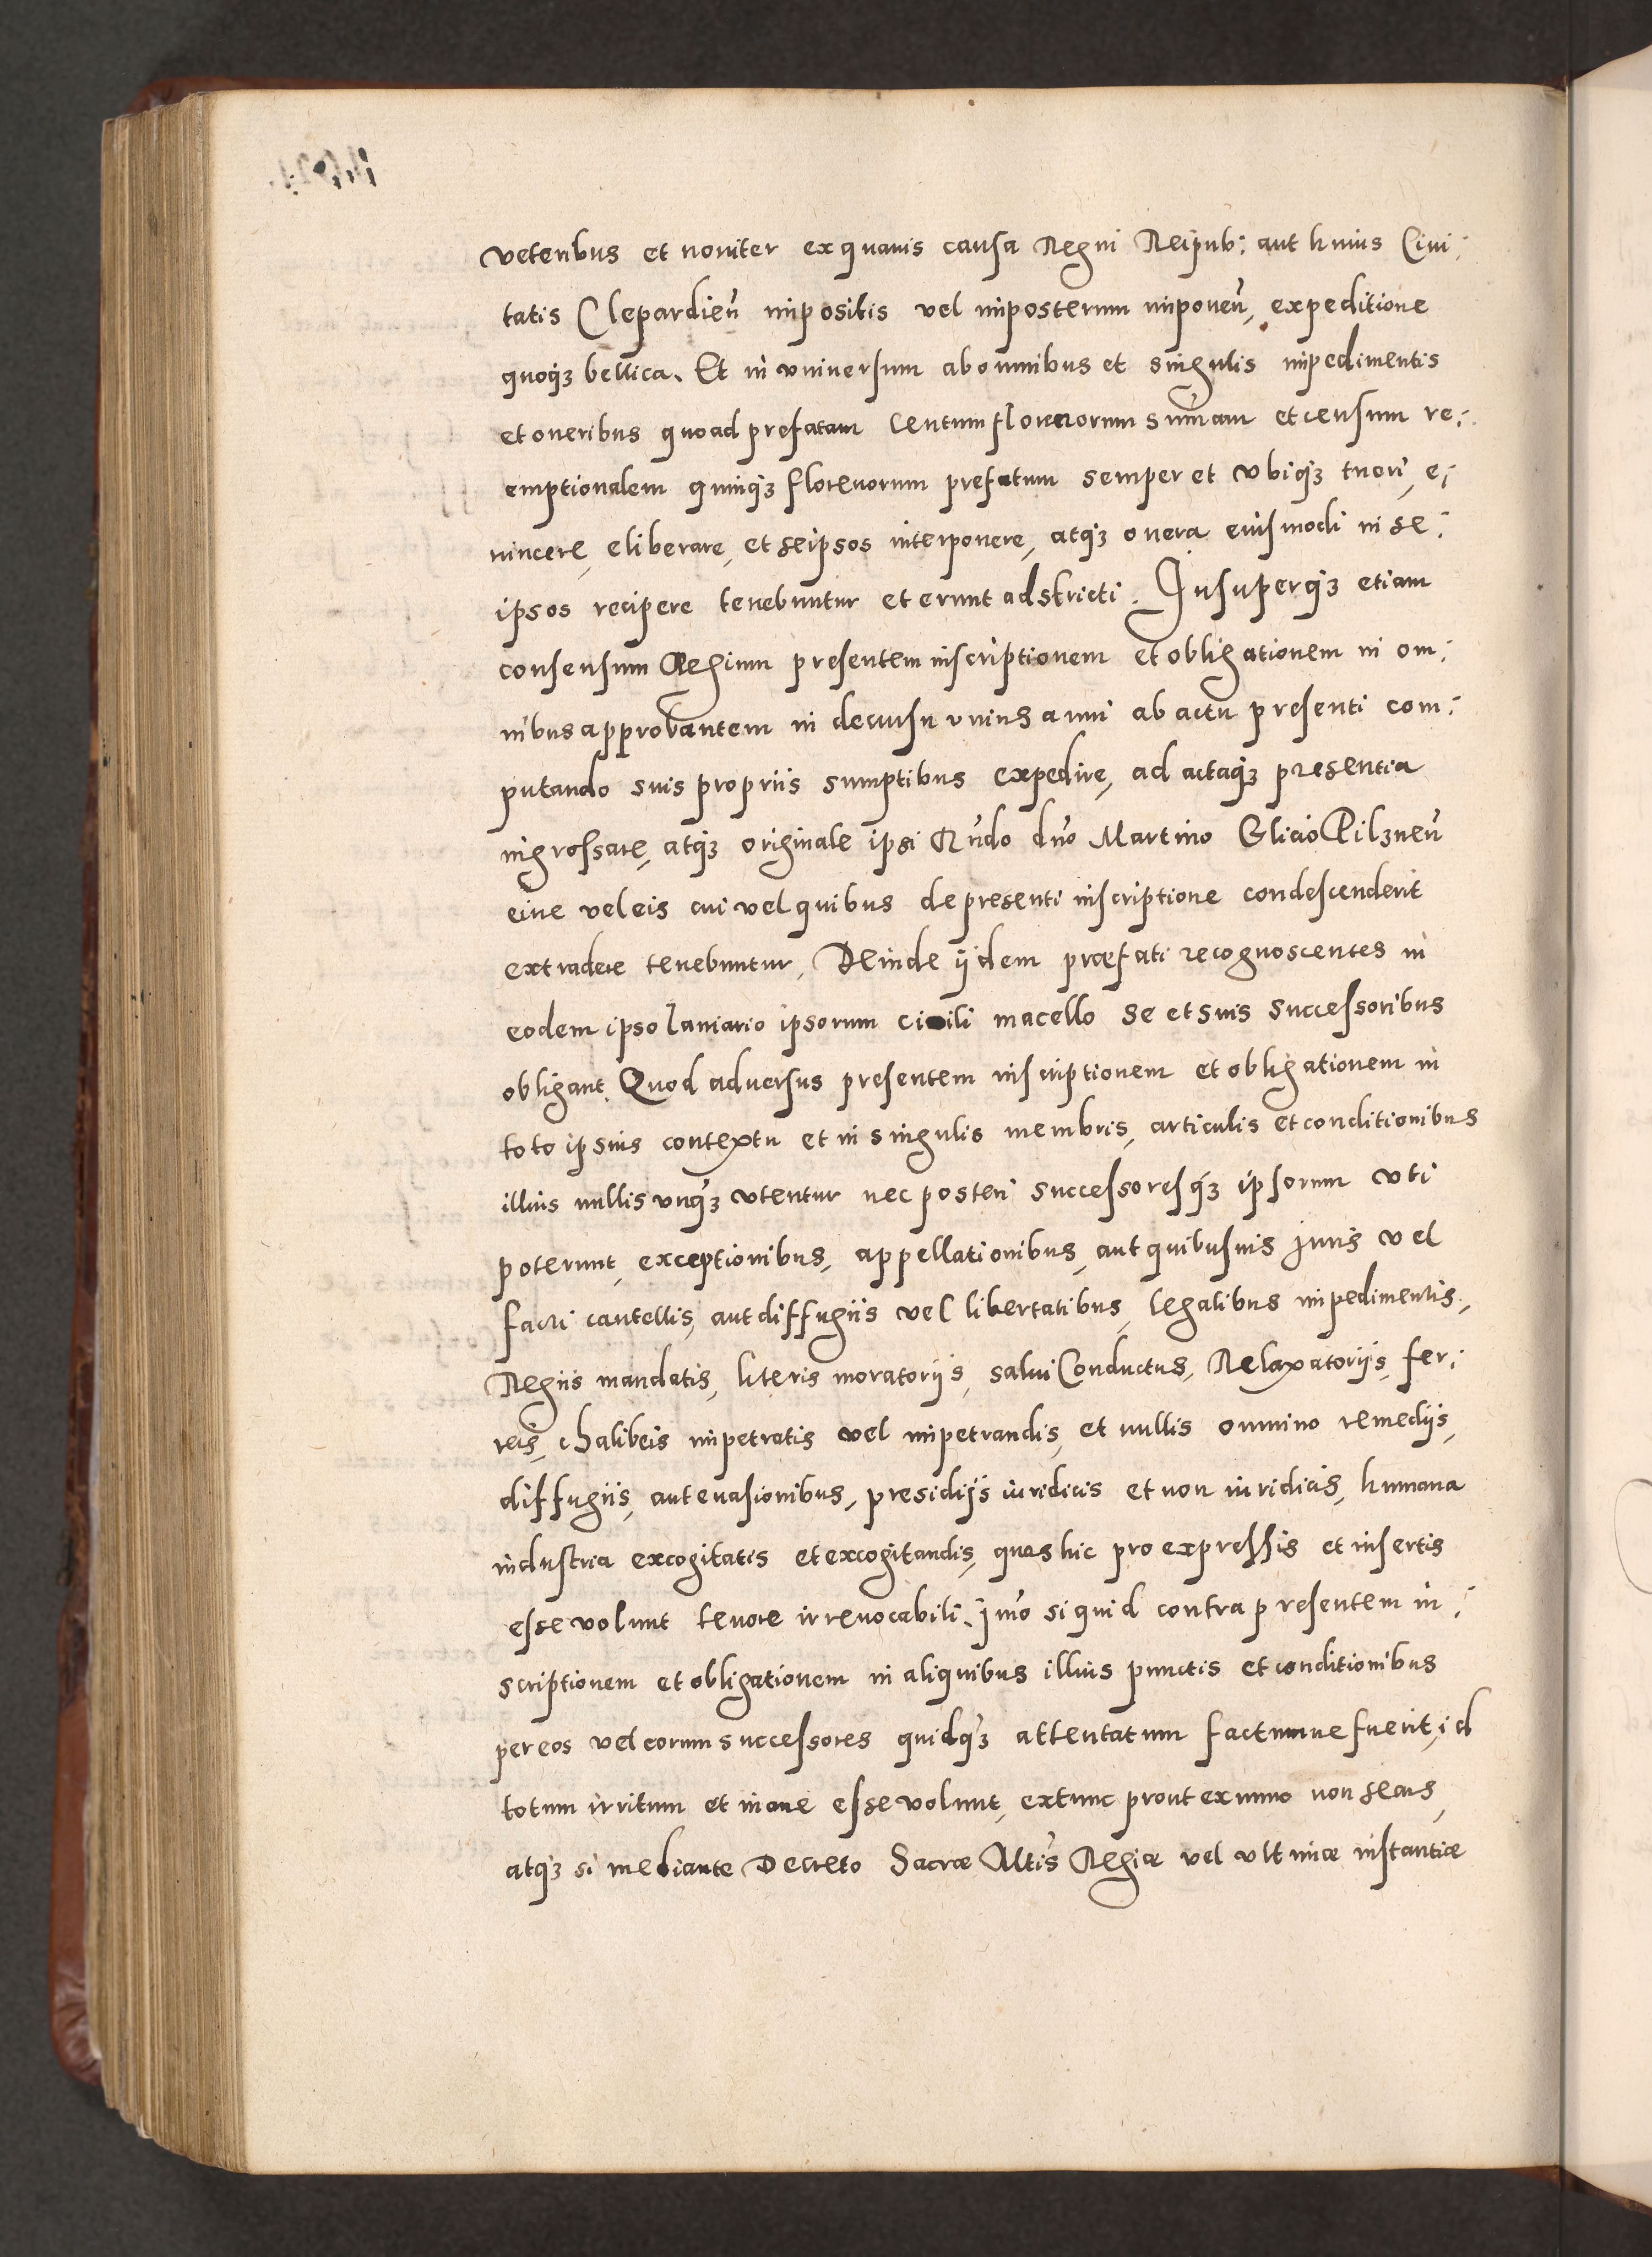 veteribus et noviter ex quavis causa Regni Reipub: aut huius Civi:
tatis Clepardieñ impositis vel imposterum imponeñ, expeditione
quoq3 bellica. Et in vniuersum ab omnibus et singulis impedimentis
et oneribus quoad prefatam Centum florenorum summam et censum re:
emptionalem quinq3 florenorum prefatum semper et vbiq3 tueri, e:
vincere, eliberare, et seipsos interponere, atq3 onera eiusmodi in se:
ipsos recipere tenebuntur et erunt adstricti. Insuperq3 etiam
consensum Regium presentem inscriptionem et obligationem in om:
nibus approbantem in decursu vnius anni ab actu presenti com:
putando suis propriis sumptibus expedire, ad actaq3 presentia
ingrossare, atq3 originale ipsi Rñdo dño Martino Glicio Pilzneñ
eiue vel eis cui vel quibus de presenti inscriptione condescenderit
extradere tenebuntur, Deinde ijdem præfati recognoscentes in
eodem ipso laniario ipsorum civili macello se et suis successoribus
obligant. Quod adversus presentem inscriptionem et obligationem in
toto ipsius contextu et in singulis membris, articulis et conditionibus
illius nullis vnq3 vtentur nec posteri successoresq3 ipsorum vti
poterunt, exceptionibus, appellationibus, aut quibusuis Juris vel
facti cautellis, aut diffugiis vel libertatibus, legalibus impedimentis,
Regiis mandatis, literis moratorijs, salui Conductus, Relaxatorijs, fer:
reis, chalibeis impetratis vel impetrandis, et nullis omnino remedijs,
diffugiis, aut euasionibus, presidijs iuridicis et non iuridicis, humana
industria excogitatis et excogitandis, quas hic pro expressis et insertis
esse volunt tenore irrevocabili. Imo si quid contra presentem in:
scriptionem et obligationem in aliquibus illius punctis et conditionibus
per eos vel eorum successores quidq3 attentatum factumue fuerit, id
totum irritum et inane esse volunt, extunc prout exnunc non secus,
atq3 si mediante Decreto Sacræ Mtis Regiæ vel vltimæ instantiæ